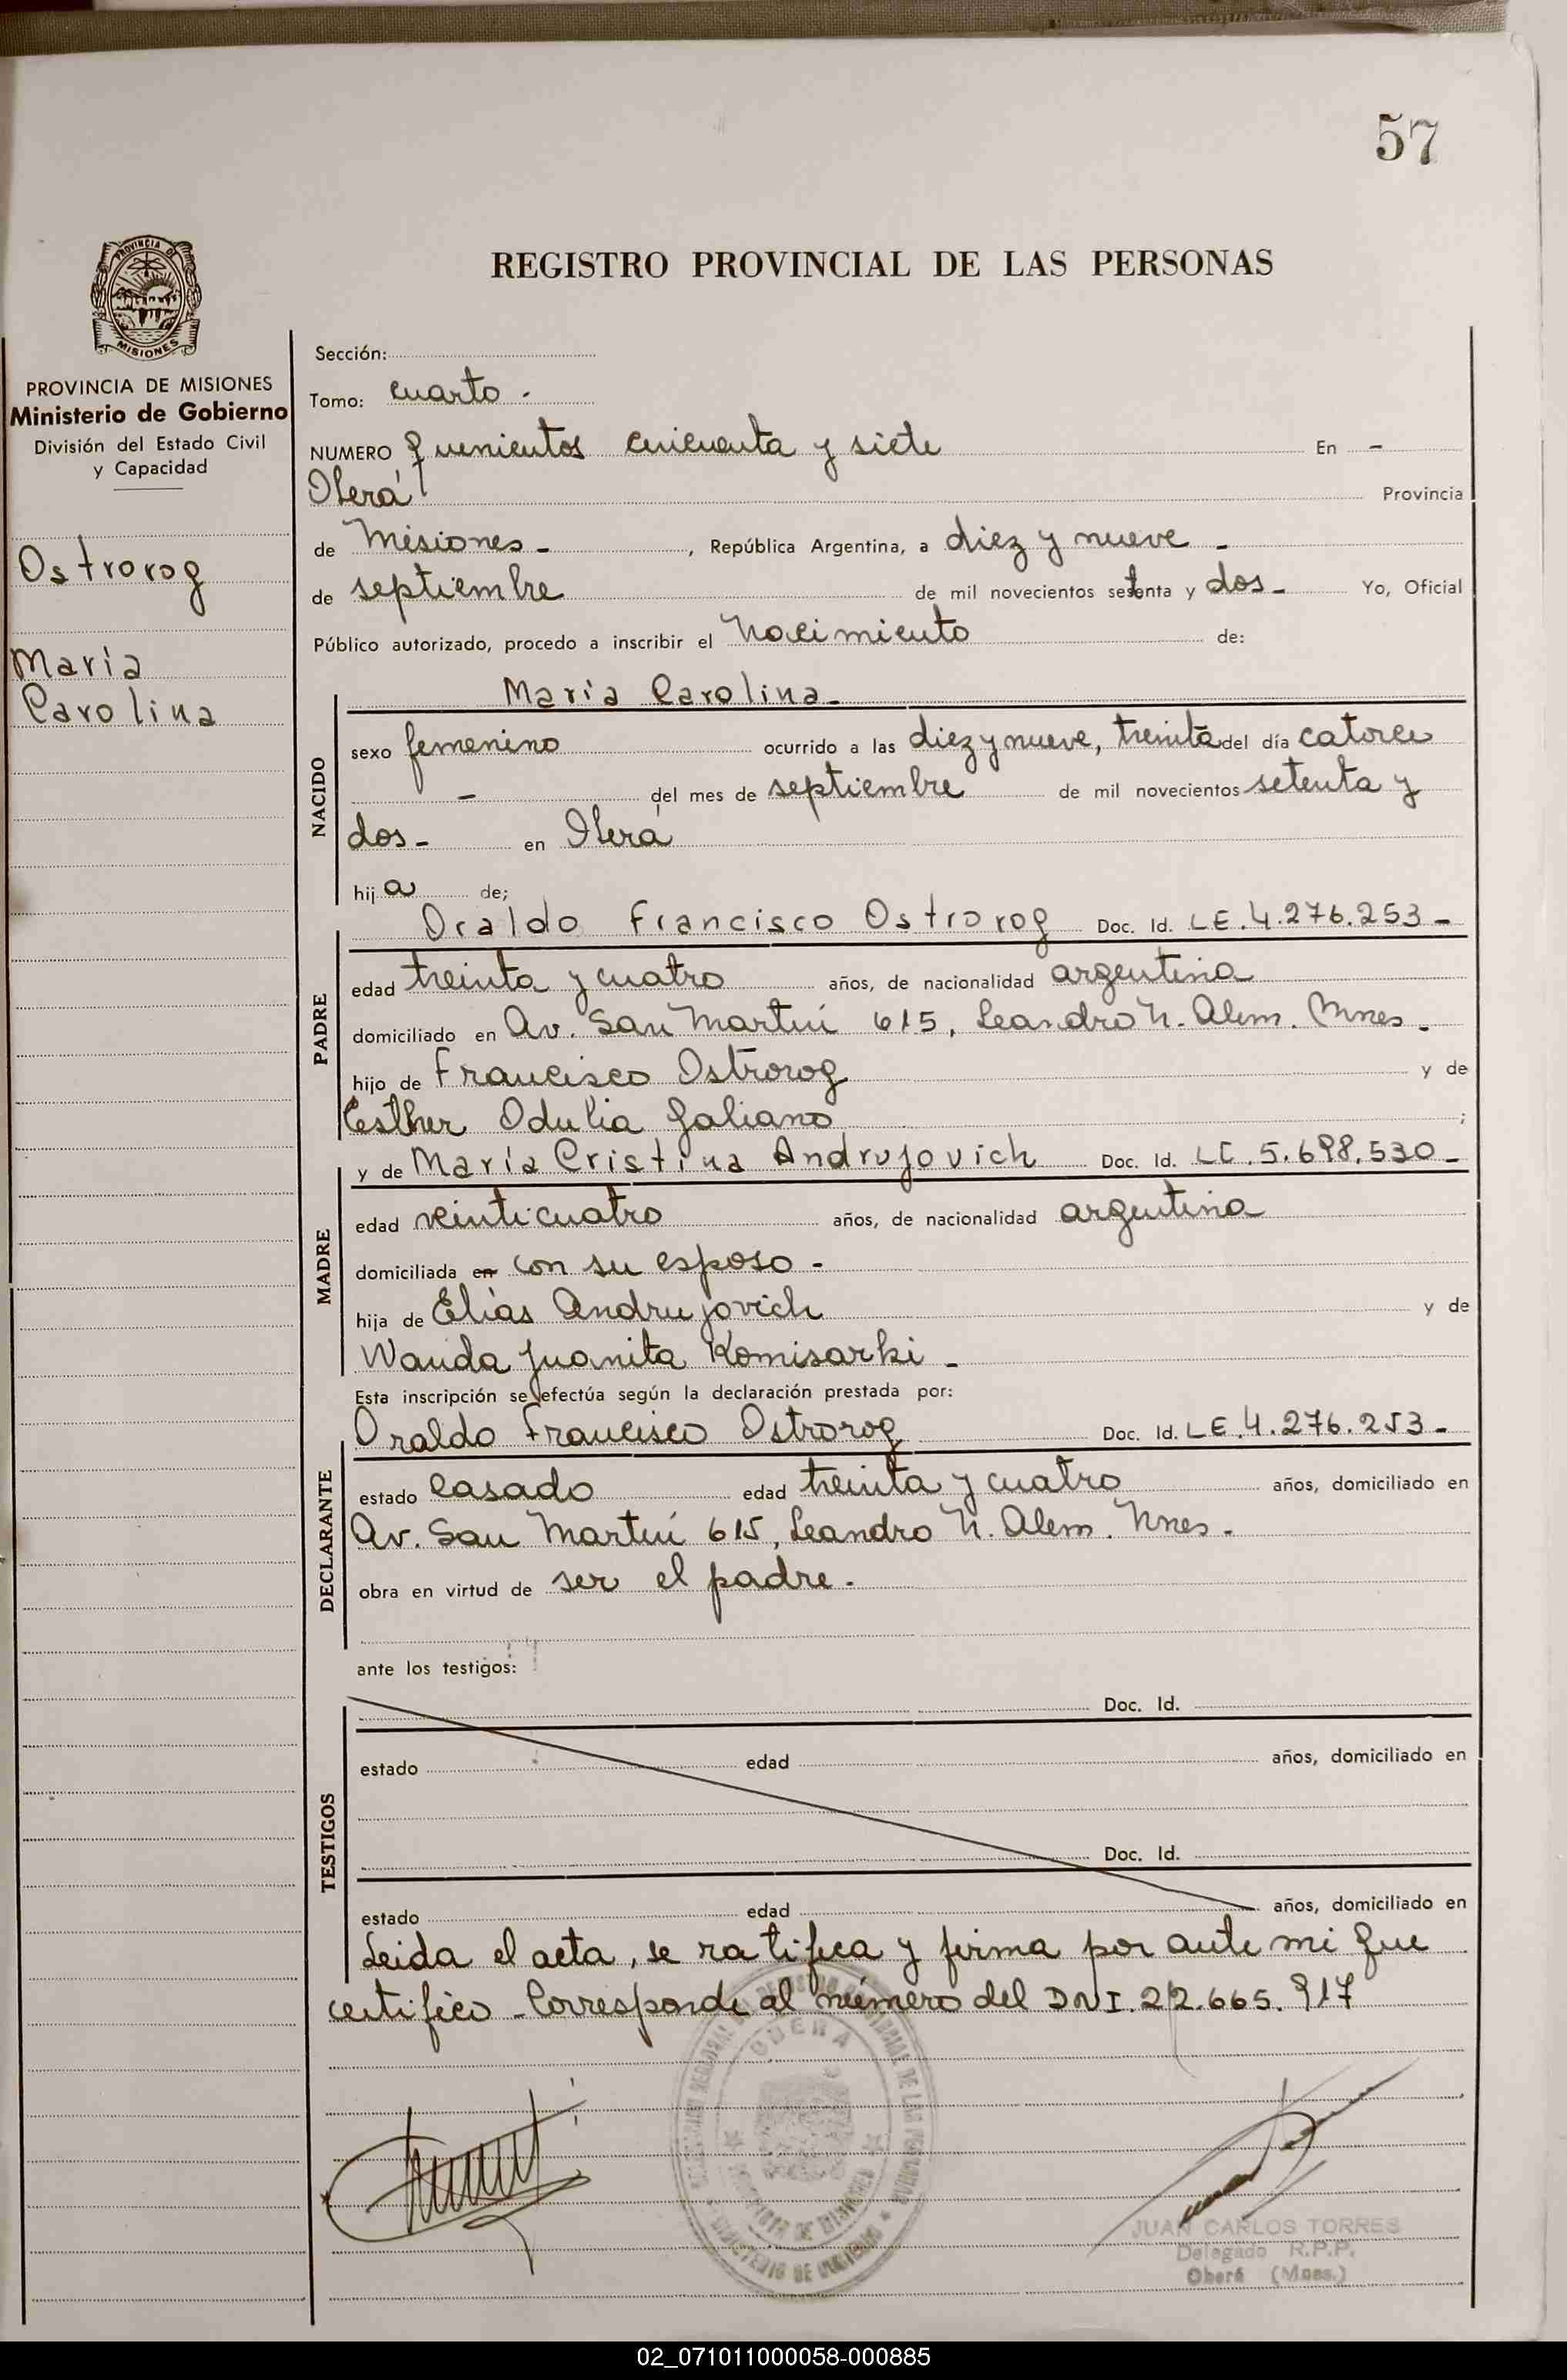 57
PROVINCIA DE
MISIONES
REGISTRO PROVINCIAL DE LAS PERSONAS
PROVINCIA DE MISIONES
Ministerio de Gobierno
División del Estado Civil
y Capacidad
Ostrorog
María
Carolina
Sección:
Tomo: cuarto.
NUMERO quinientos cincuenta y siete En -
Oberá Provincia
de Misiones - , República Argentina, a diez y nueve -
de septiembre de mil novecientos setenta y dos - Yo, Oficial
Público autorizado, procedo a inscribir el Nacimiento de:
María Carolina -
NACIDO
sexo femenino ocurrido a las diez y nueve, treinta del día catorce
- del mes de septiembre de mil novecientos setenta y
dos - en Oberá
hija de;
PADRE
Oraldo Francisco Ostrorog Doc. Id. LE. 4.276.253 -
edad treinta y cuatro años, de nacionalidad argentina
domiciliado en Av. San Martín 615, Leandro N. Alem. Mnes -
hijo de Francisco Ostrorog y de
Esther Odulia Galiano ;
MADRE
y de María Cristina Andrujovich Doc. Id. LC. 5.698.530 -
edad veinticuatro años, de nacionalidad argentina
domiciliada en con su esposo -
hija de Elías Andrujovich y de
Wanda Juanita Komisarki -
Esta inscripción se efectúa según la declaración prestada por:
DECLARANTE
Oraldo Francisco Ostrorog Doc. Id. LE. 4.276.253 -
estado casado edad treinta y cuatro años, domiciliado en
Av. San Martín 615, Leandro N. Alem. Mnes -
obra en virtud de ser el padre -
ante los testigos:
TESTIGOS
Doc. Id.
estado edad años, domiciliado en
Doc. Id.
estado edad años, domiciliado en
Leida el acta, se ratifica y firma por ante mi que
certifico - Corresponde al número del DNI. 22.665.917
OBERA
PROVINCIA DE MISIONES
MINISTERIO DE GOBIERNO
JUAN CARLOS TORRES
Delegado R.P.P.
Oberá (Mnes.)
02_071011000058-000885